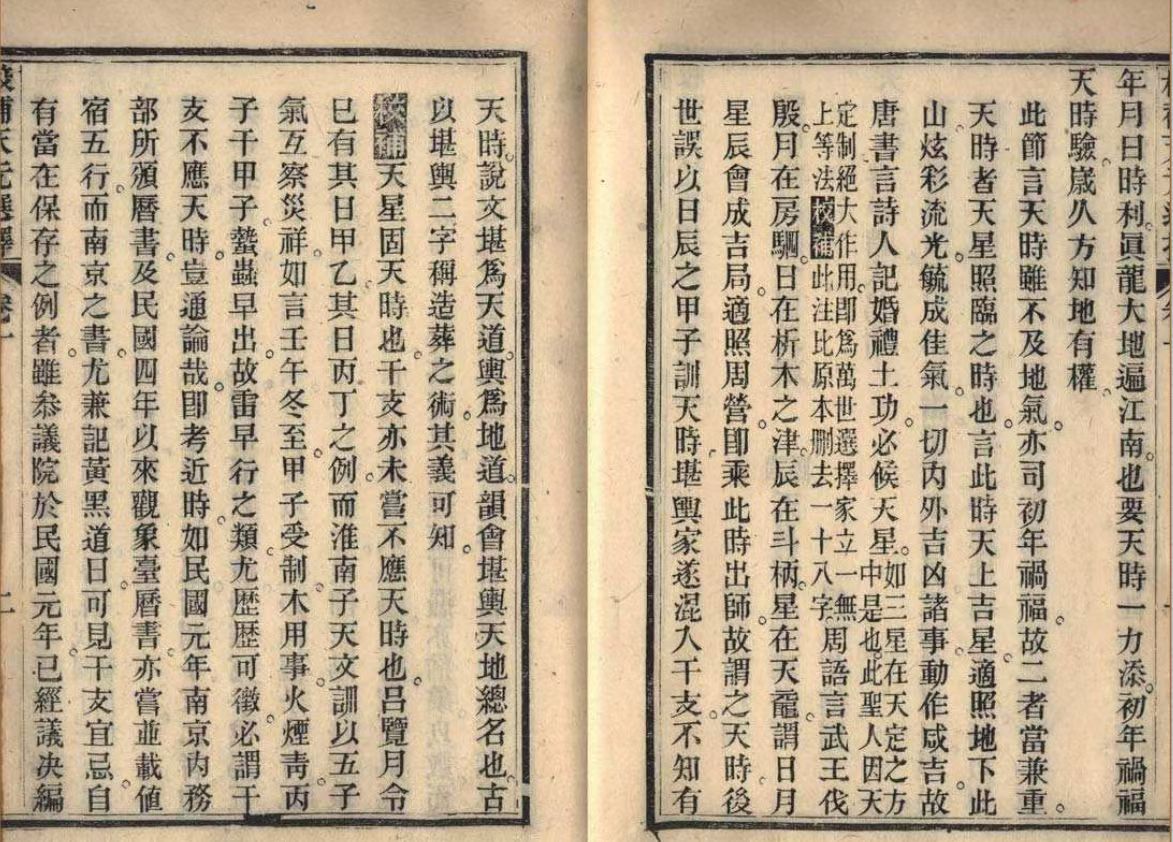 年月日時利。眞龍大地遍江南也要天時一力添。初年禍福
天時驗。歲久方知地有權。
此節言天時雖不及地氣。亦司初年禍福。故二者當兼重。
天時者天星照臨之時也。言此時天上吉星適照地下此
山炫彩流光。毓成佳氣。一切內外吉凶諸事動作咸吉。故
唐書言詩人記婚禮土功必候天星。如三星在天定之方
中是也。此聖人因天
定制絕大作用。即爲萬世選擇家立一無
上等法校補此注比原本刪去一十八字。周語言武王伐
殷。月在房駟。日在析木之津。辰在斗柄。星在天黿。謂日月
星辰會成吉局。適照周營。即乘此時出師。故謂之天時。後
世誤以日辰之甲子訓天時。堪輿家遂混入干支。不知有
天時。說文堪爲天道。輿爲地道。韻會堪輿天地總名也。古
以堪輿二字稱造葬之術。其義可知。
校補天星固天時也。干支亦未嘗不應天時也。呂覽月令
已有其日甲乙其日丙丁之例。而淮南子天文訓以五子
氣互察災祥。如言壬午冬至。甲子受制。木用事。火煙靑。丙
子干甲子。蟄蟲早出。故雷早行之類。尤歷歷可徵。必謂干
支不應天時。豈通論哉。即考近時。如民國元年南京內務
部所頒曆書。及民國四年以來觀象臺曆書。亦嘗並載値
宿五行。而南京之書。尤兼記黃黑道日。可見干支宜忌。自
有當在保存之例者。雖叅議院於民國元年。已經議決編
校補天元選擇 卷一 二